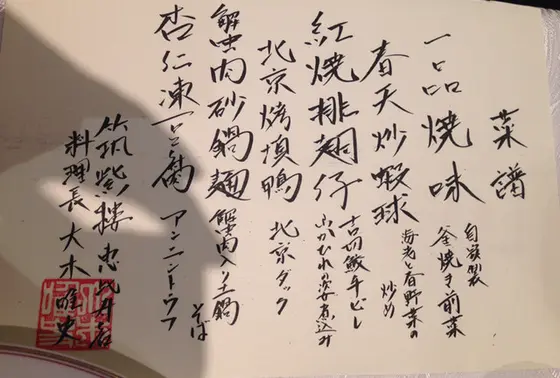 菜譜
一品焼味
自家製
釜焼き前菜
春天炒蝦球
海老と春野菜の
炒め
紅焼排翅仔
吉切鮫手ビレ
ふかひれの姿煮込み
北京烤填鴨
北京ダック
蟹肉砂鍋麺
蟹肉入り土鍋
そば
杏仁凍豆腐
アンニンドウフ
筑紫樓 恵比寿店
料理長 大木唯史